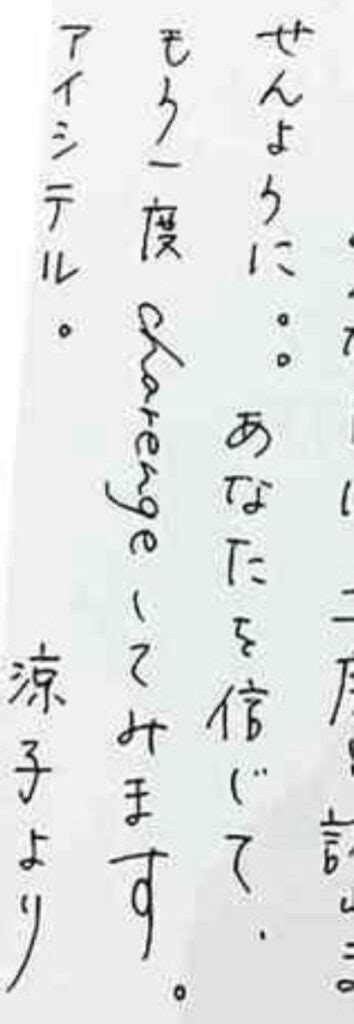 せんように。。 あなたを信じて、
もう一度 charenge してみます。
アイシテル。 涼子より